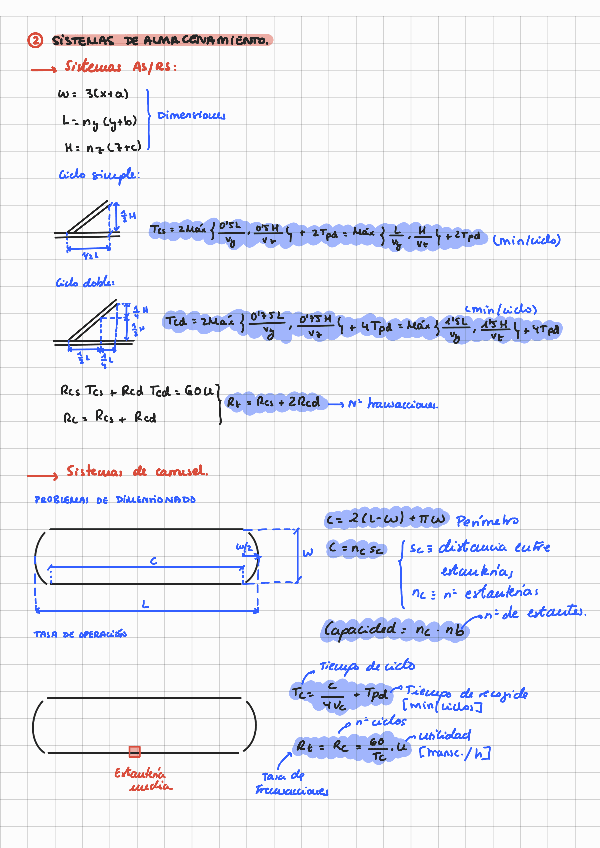 ② SISTEMAS DE ALMACENAMIENTO.
→ Sistemas AS/RS:
W = 3(x+a)
L = ny (y+b)
H = nz (z+c)
Dimensiones
Ciclo simple:
½H
1/2L
Tcs = 2Máx { 0'5L/Vy , 0'5H/Vz } + 2Tpd = Máx { L/Vy , H/Vz } + 2Tpd (min/ciclo)
Ciclo doble:
¼H
½H
½L
¼L
(min/ciclo)
Tcd = 2Máx { 0'75L/Vy , 0'75H/Vz } + 4Tpd = Máx { 1'5L/Vy , 1'5H/Vz } + 4Tpd
Rcs Tcs + Rcd Tcd = 60U
Rc = Rcs + Rcd
Rt = Rcs + 2Rcd → Nº transacciones.
→ Sistemas de carrusel.
PROBLEMAS DE DIMENSIONADO
W/2
W
C
L
C = 2(L-W) + πW Perímetro
C = nc sc
sc ≡ distancia entre
estanterías
nc ≡ nº estanterías
Capacidad = nc · nb
nº de estantes.
TASA DE OPERACIÓN
Estantería
media
Tiempo de ciclo
Tc = C/4Vc + Tpd
Tiempo de recogida
[min/ciclos]
nº ciclos
Rt = Rc = 60/Tc · U
utilidad
[transc./h]
Tasa de
transacciones